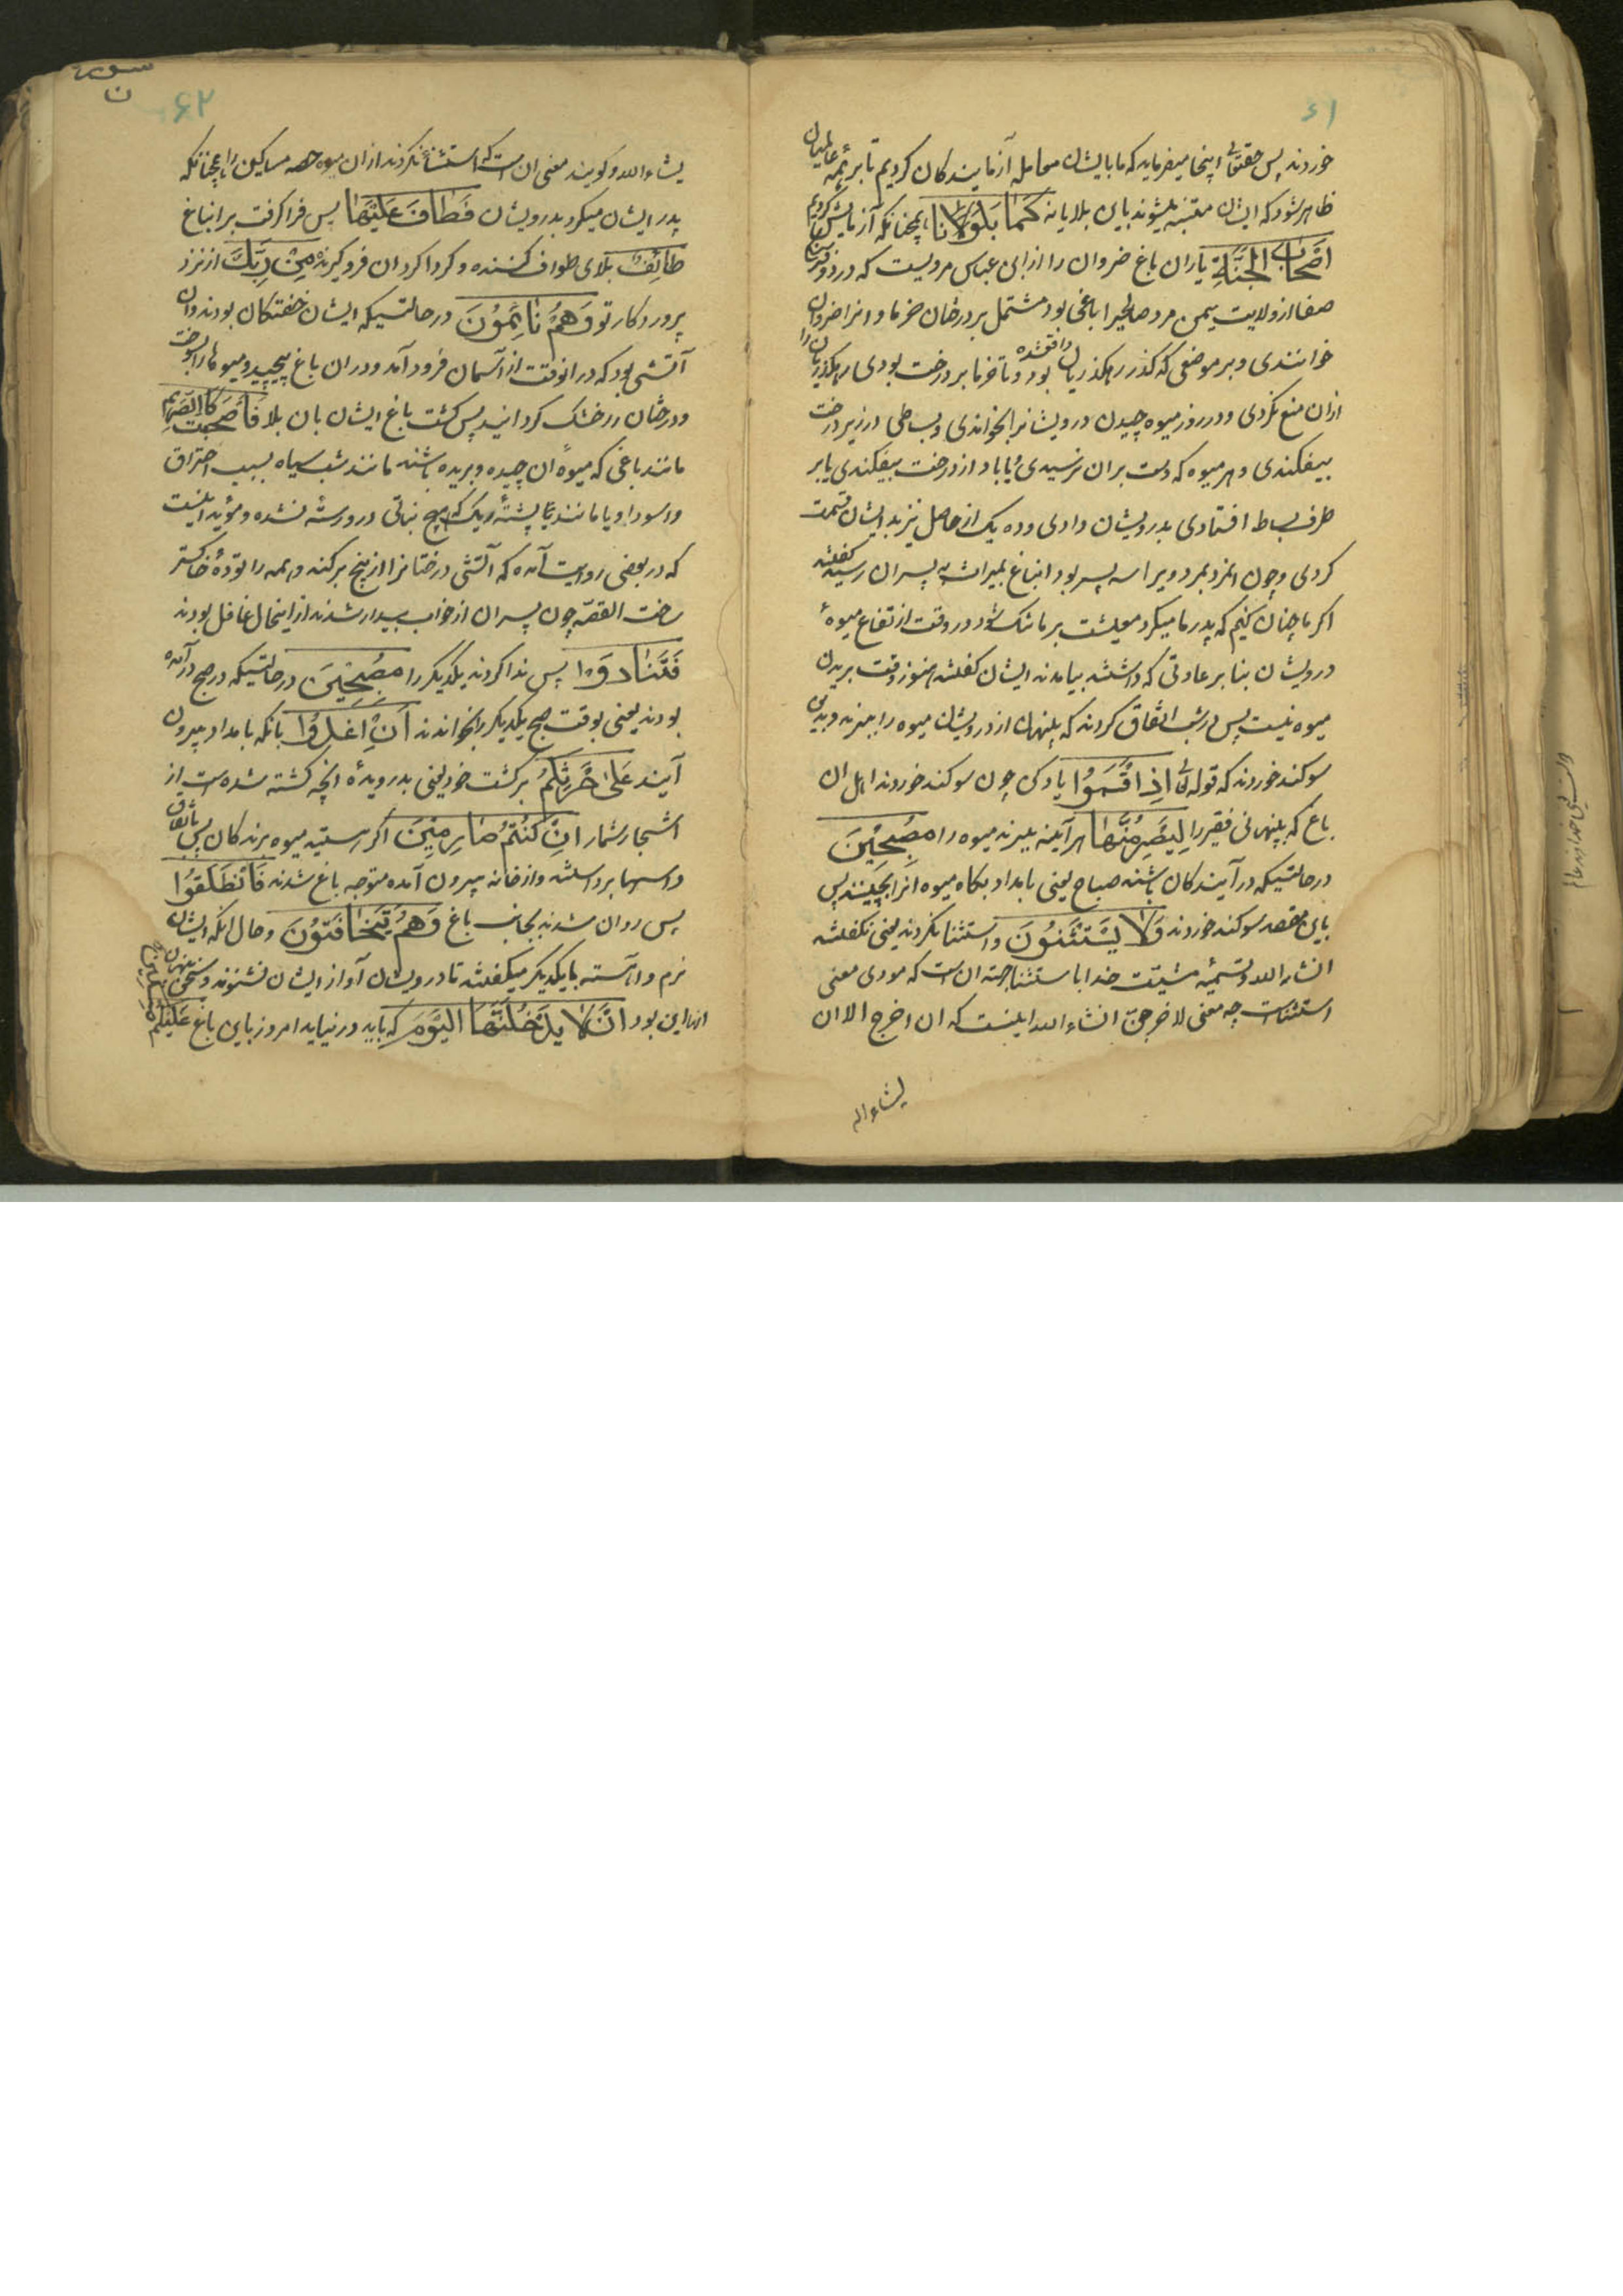 ۶۱
خوردند پس حقتعالی اینجا میفرماید که ما بایشان معامله آزمایندکان کردیم تا بر همه عالمیان
ظاهر شود که ایشان متنبه میشوند باین بلا یا نه کَمَا بَلَوْنَا همچنانکه آزمایش کردیم
اَصْحَابَ الْجَنَّةِ یاران باغ ضروان را از ابن عباس مرویست که در دو فرسخی
صنعا از ولایت یمن مرد صالحی را باغی بود مشتمل بر درختان خرما و انرا ضروان
خواندندی و بر موضعی که کذر رهکذریان واقع شده بود و تا خرما بر درخت بودی رهکذریان را
ازان منع نکردی و در روز میوه چیدن درویشانرا بخواندی و بساطی در زیر درخت
بیفکندی و هر میوه که دست بران نرسیدی و یا باد از درخت بیفکندی یا بر
طرف بساط افتادی بدرویشان دادی و ده یک از حاصل نیز بدایشان قسمت
کردی و چون انمرد بمرد ویرا سه پسر بود انباغ بمیراث به پسران رسید گفتند
اکر ما چنان کنیم که پدر ما میکرد معیشت بر ما تنک شود در وقت ارتفاع میوهٔ
درویشان بنا بر عادتی که داشتند بیامدند ایشان کفتند هنوز وقت بریدن
میوه نیست پس در شب اتفاق کردند که پنهان از درویشان میوه را ببرند و بدین
سوکند خوردند که قوله تعالی اِذْ اَقْسَمُوْا یاد کن چون سوکند خوردند اهل ان
باغ که پنهان فقیر را لِیَصْرِمُنَّهَا هر آینه ببرند میوه را مُصْبِحِیْنَ
درحالتیکه درآیندکان باشند صباح یعنی بامداد بکاه میوه انرا بچینند پس
باین مقصد سوکند خوردند وَلَا یَسْتَثْنُوْنَ و استثنا نکردند یعنی نکفتند
انشاء الله و تسمیه مشیت خدا باستثنا جهته ان است که مودی معنی
استثناست چه معنی لا خرجن انشاء الله اینست که ان اخرج الا ان
یشاء الله
سورة
ن
۶۲
یشاء الله و کویند معنی ان است که استثنا نکردند ازان میوه حصه مساکین را همچنانکه
پدر ایشان میکرد بدرویشان فَطَافَ عَلَیْهَا پس فرا کرفت بر انباغ
طَائِفٌ بلای طواف کننده و کرداکرد ان فرو کیرنده مِنْ رَبِّكَ از نزد
پروردکار تو وَهُمْ نَائِمُوْنَ درحالتیکه ایشان خفتکان بودند و ان
آتشی بود که در انوقت از آسمان فرود آمد و دران باغ پیچید و میوها را بسوخت
و درختان را خشک کردانید پس کشت باغ ایشان بان بلا فَاَصْبَحَتْ کَالصَّرِیْمِ
مانند باغی که میوهٔ ان چیده و بریده باشند مانند شب سیاه بسبب احتراق
و اسوداد یا مانند پشتهٔ ریک که هیچ نباتی در و رسته نشده و مؤید اینست
که در بعضی روایت آمده که آتشی درختانرا از بیخ برکند و همه را تودهٔ خاکستر
ساخت القصه چون پسران از خواب بیدار شدند از اینحال غافل بودند
فَتَنَادَوْا پس ندا کردند یکدیکر را مُصْبِحِیْنَ درحالتیکه در صبح درآمده
بودند یعنی بوقت صبح یکدیکر را بخواندند اَنِ اغْدُوْا بانکه بامداد بیرون
آیند عَلَىٰ حَرْثِكُمْ بر کشت خود یعنی بدرویدهٔ انچه کشته شده است از
اشجار شما اِنْ کُنْتُمْ صَارِمِیْنَ اکر هستید میوه برندکان پس باتفاق
داسها برداشتند و از خانه بیرون آمده متوجه باغ شدند فَانْطَلَقُوْا
پس روان شدند بجانب باغ وَهُمْ یَتَخَافَتُوْنَ و حال انکه ایشان
نرم و اهسته با یکدیکر میکفتند تا درویشان آواز ایشان نشنوند و سخن پنهان
انها این بود اَنْ لَا یَدْخُلَنَّهَا الْیَوْمَ که باید در نیاید امروز باین باغ عَلَیْکُمْ